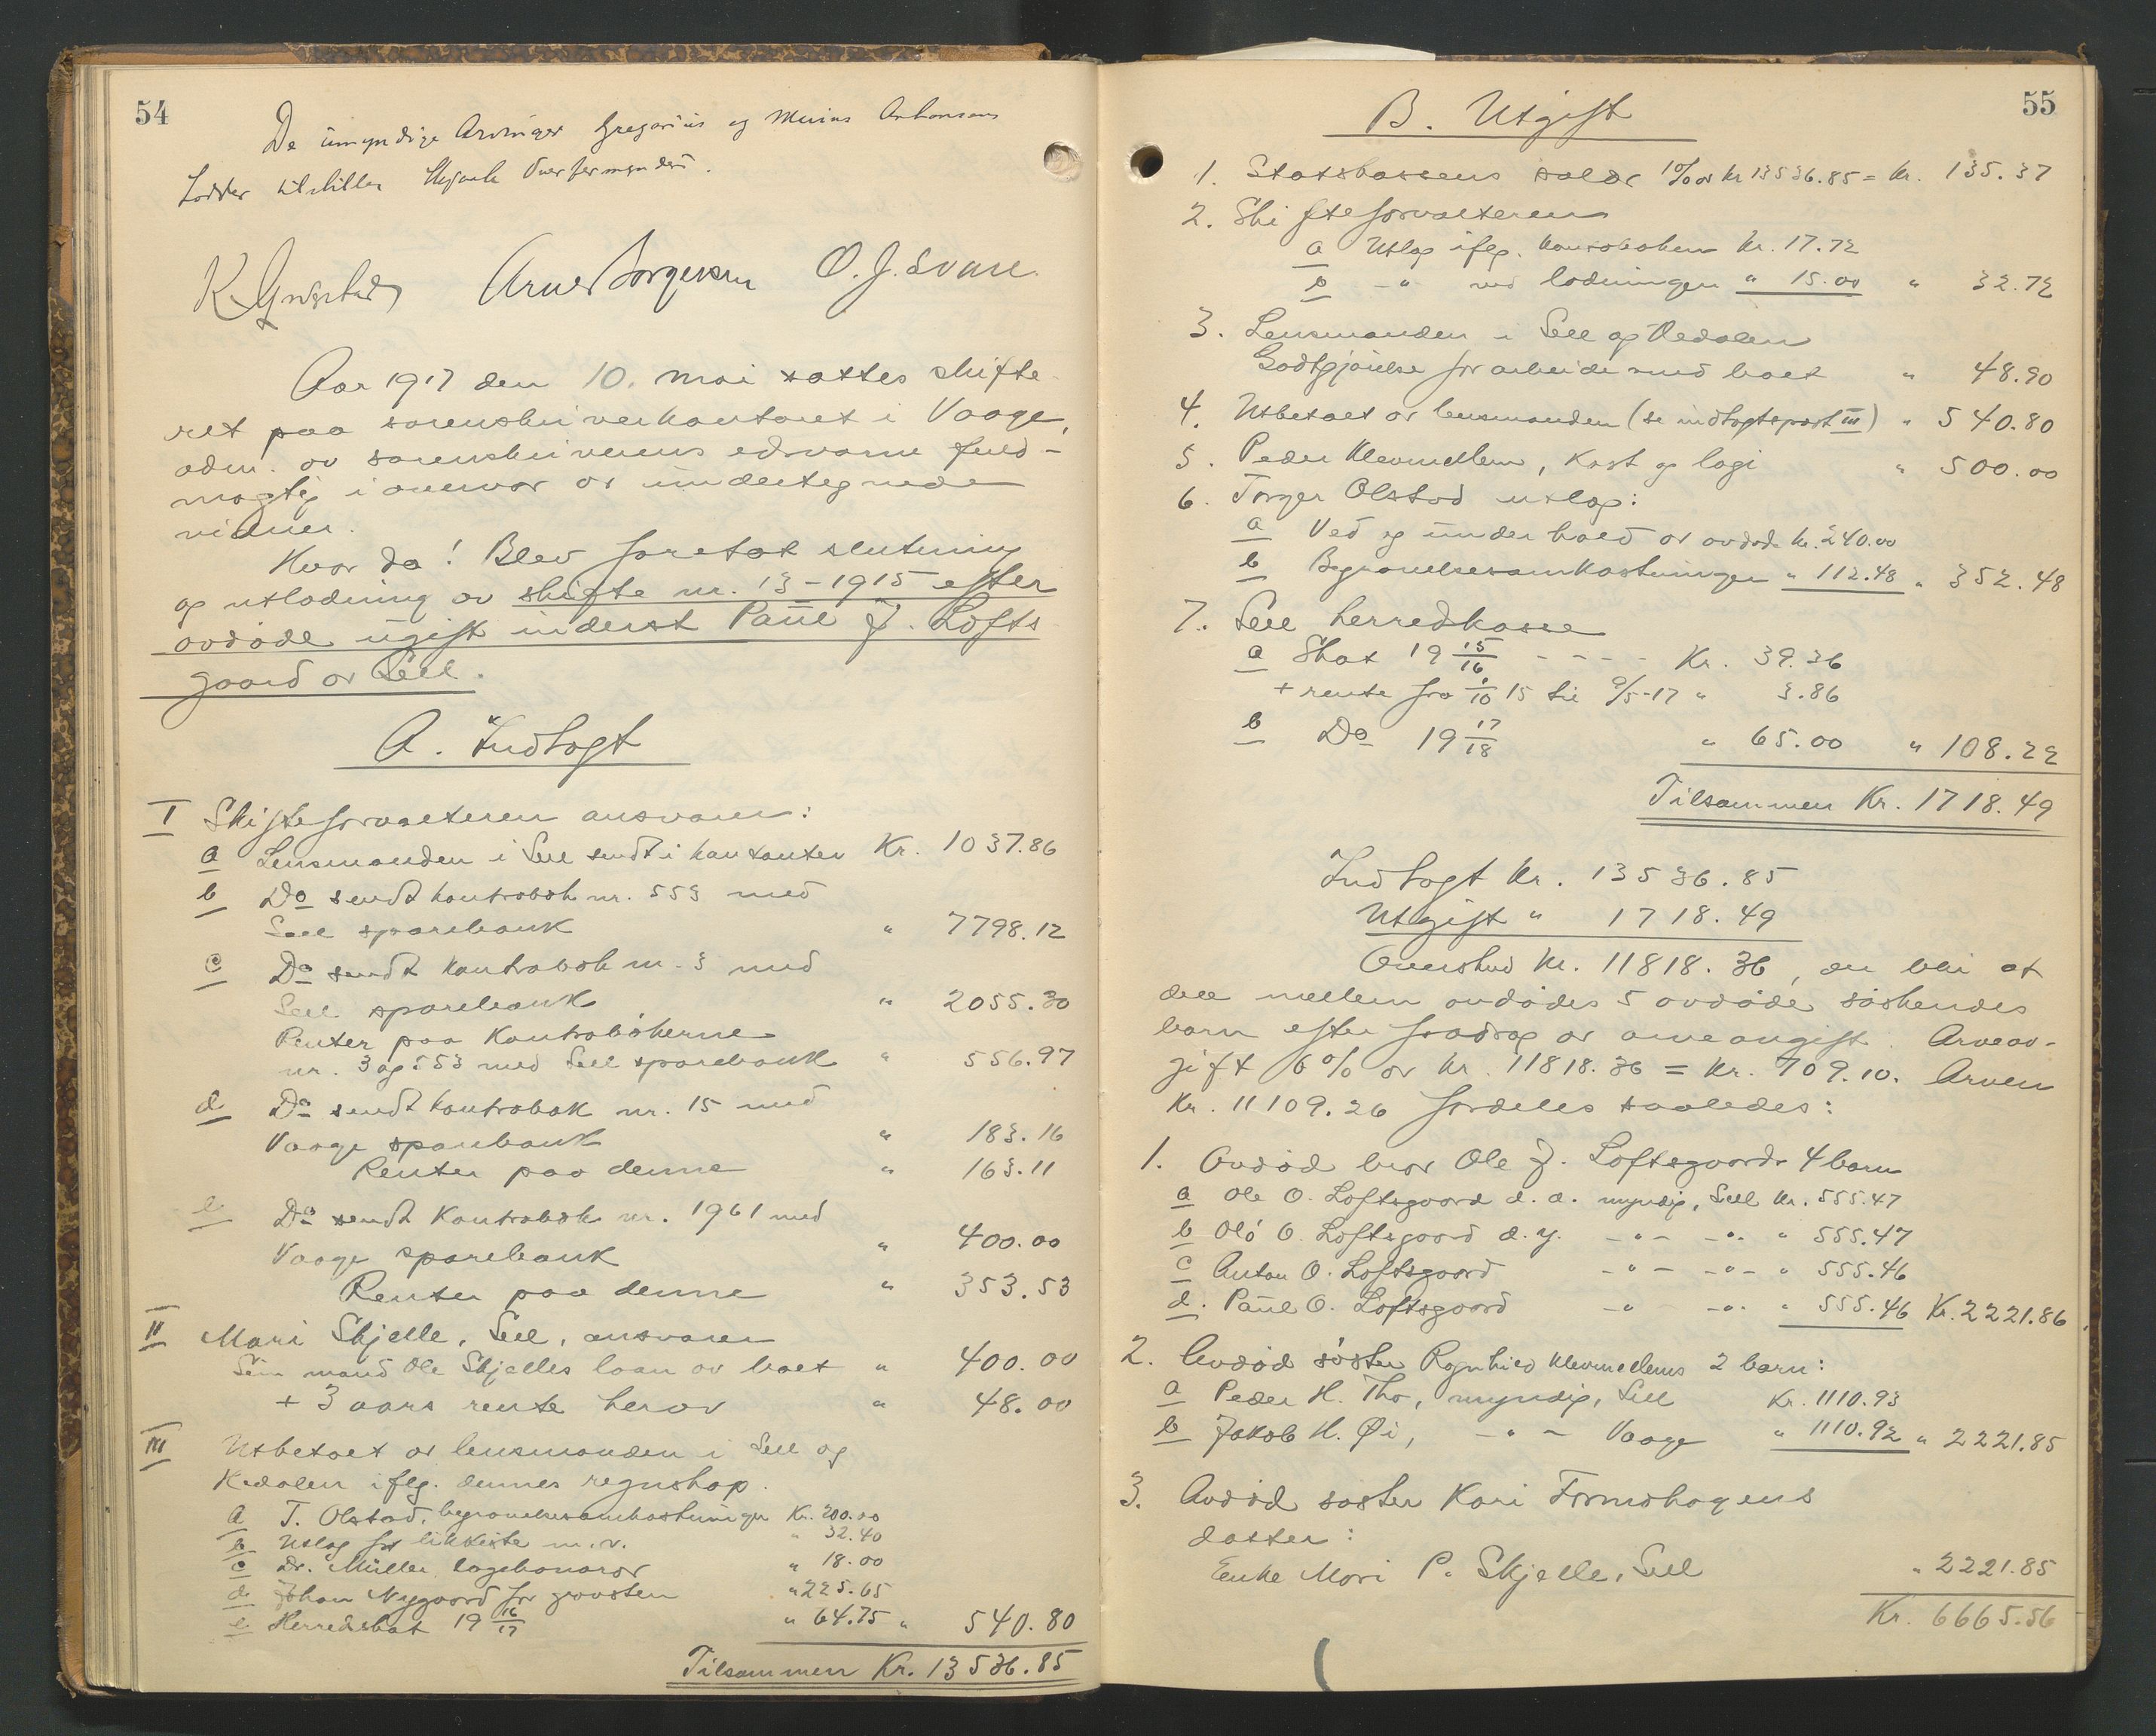 54
De umyndige Arvinger Gregorius og Marius Antonsens
Lodder tilstilles Overformynderi.
Arne Jorgensen O. J. Svare.
Aar 1917 den 10. mai sattes skifte-
ret paa sorenskriverkontoret i Vaage,
adm. av sorenskriverens edsvorne fuld-
mægtig i overvær av undertegnede
vidner.
Hvor da! Blev foretat slutning
og utlodning av skifte nr. 13-1915 efter
avdøde ugift inderst Paul J. Lofts
gaard av Sell.
A. Indtægt
I Skifteforvalteren ansvarer:
a Lensmanden i Sell sendt i kontanter Kr. 1037.86
b Do sendt kontrabok nr. 553 med
Sell sparebank " 7798.12
c Do sendt kontrabok nr. 3 med
Sell sparebank " 2055.30
Renter paa kontrabøkerne
nr. 3 og 553 med Sell sparebank " 556.97
d Do sendt kontrabok nr. 15 med
Vaage sparebank " 183.16
Renter paa denne " 163.11
e Do sendt kontrabok nr. 1961 med
Vaage sparebank " 400.00
Renter paa denne " 353.53
II Mari Skjelle, Sell, ansvarer
Sin mand Ole Skjelles laan av boet " 400.00
+ 3 aars rente herav " 48.00
III Utbetalt av lensmanden i Sell og
Hedalen iflg. dennes regnskap.
a T. Olstad, begravelsesomkostninger Kr. 200.00
b Utlæg for likkiste m.v. " 32.40
c Dr. Müller lægehonorar " 18.00
d Johan Nygaard for gravsten " 225.65
e Herredskat 19 16/17 " 64.75 " 540.80
Tilsammen Kr. 13536.85
55
B. Utgift
1. Statskassens salær 1% av kr 13536.85 = kr. 135.37
2. Skifteforvalteren
a Utlæg iflg. kontraboken kr. 17.72
b -"- ved lodningen " 15.00 " 32.72
3. Lensmanden i Sell og Hedalen
Godtgjørelse for arbeide med boet " 48.90
4. Utbetalt av lensmanden (se indtægtspost III) " 540.80
5. Peder Klevmellem, Kost og logi " 500.00
6. Torger Olstad utlæg:
a Ved og underhold av avdøde kr. 240.00
b Begravelsesomkostninger " 112.48 " 352.48
7. Sell herredkasse
a Skat 19 15/16 - - - - Kr. 39.36
+ rente fra 1/10 15 til 9/5-17 " 3.86
b Do 19 17/18 " 65.00 " 108.22
Tilsammen Kr. 1718.49
Indtægt kr. 13536.85
Utgift " 1718.49
Overskud kr. 11818.36, der blir at
dele mellem avdødes 5 avdøde søskendes
barn efter fradrag av arveavgift. Arveav-
gift 6% av kr. 11818.36 = kr. 709.10. Arven
kr. 11109.26 fordeles saaledes:
1. Avdød bror Ole J. Loftsgaards 4 barn
a Ole O. Loftsgaard d.æ. myndig, Sell kr. 555.47
b Ole O. Loftsgaard d.y. -"- -"- " 555.47
c Anton O. Loftsgaard -"- -"- " 555.46
d. Paul O. Loftsgaard -"- -"- " 555.46 Kr. 2221.86
2. Avdød søster Ragnhild Klevmellems 2 barn:
a Peder H. Tho, myndig, Sell Kr. 1110.93
b Jakob H. Øi, -"- Vaage " 1110.92 " 2221.85
3. Avdød søster Kari Formohagens
datter:
Enke Mari P. Skjelle, Sell " 2221.85
Kr. 6665.56